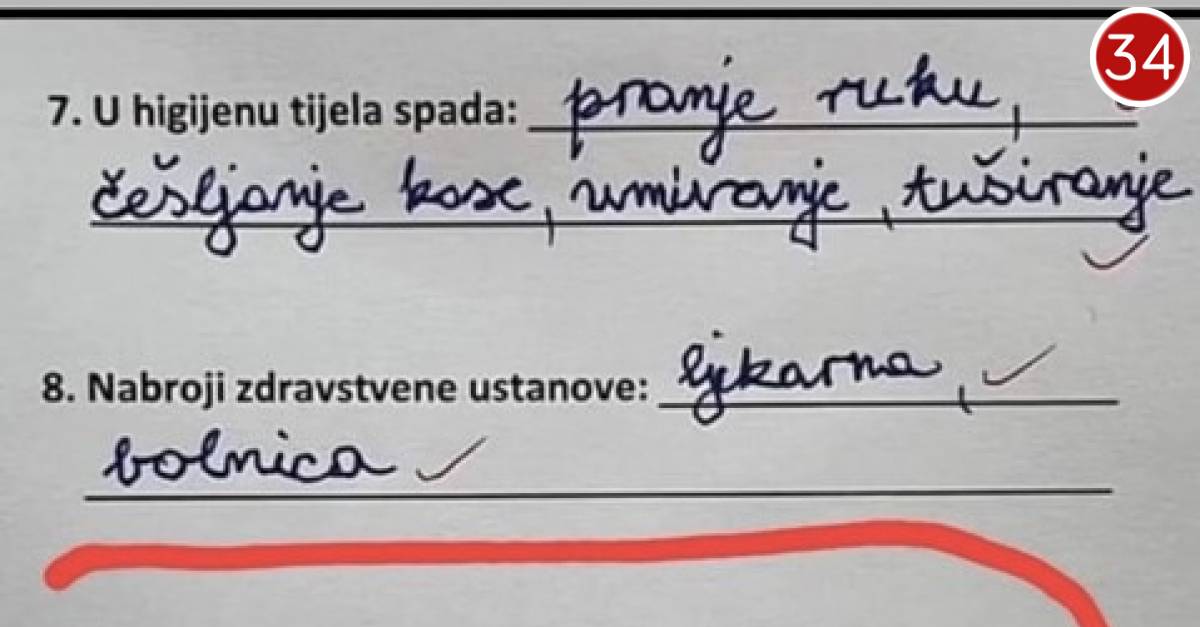 34
7. U higijenu tijela spada: pranje ruku,
češljanje kose, umivanje, tuširanje
8. Nabroji zdravstvene ustanove: ljekarna,
bolnica